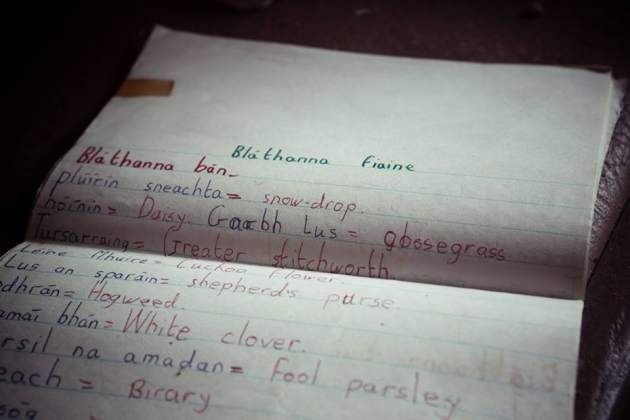 Bláthanna fiaine
Bláthanna bán_
plúirín sneachta = snow-drop.
nóinín = Daisy. Garbh Lus = goosegrass
Tursarraing = Greater stitchworth
Léine Mhuire = Cuckoo flower.
Lus an sparáin = shepherd's purse.
edhrán = Hogweed.
amáí bhán = White clover.
rsil na amadan = Fool parsley
each = Birary